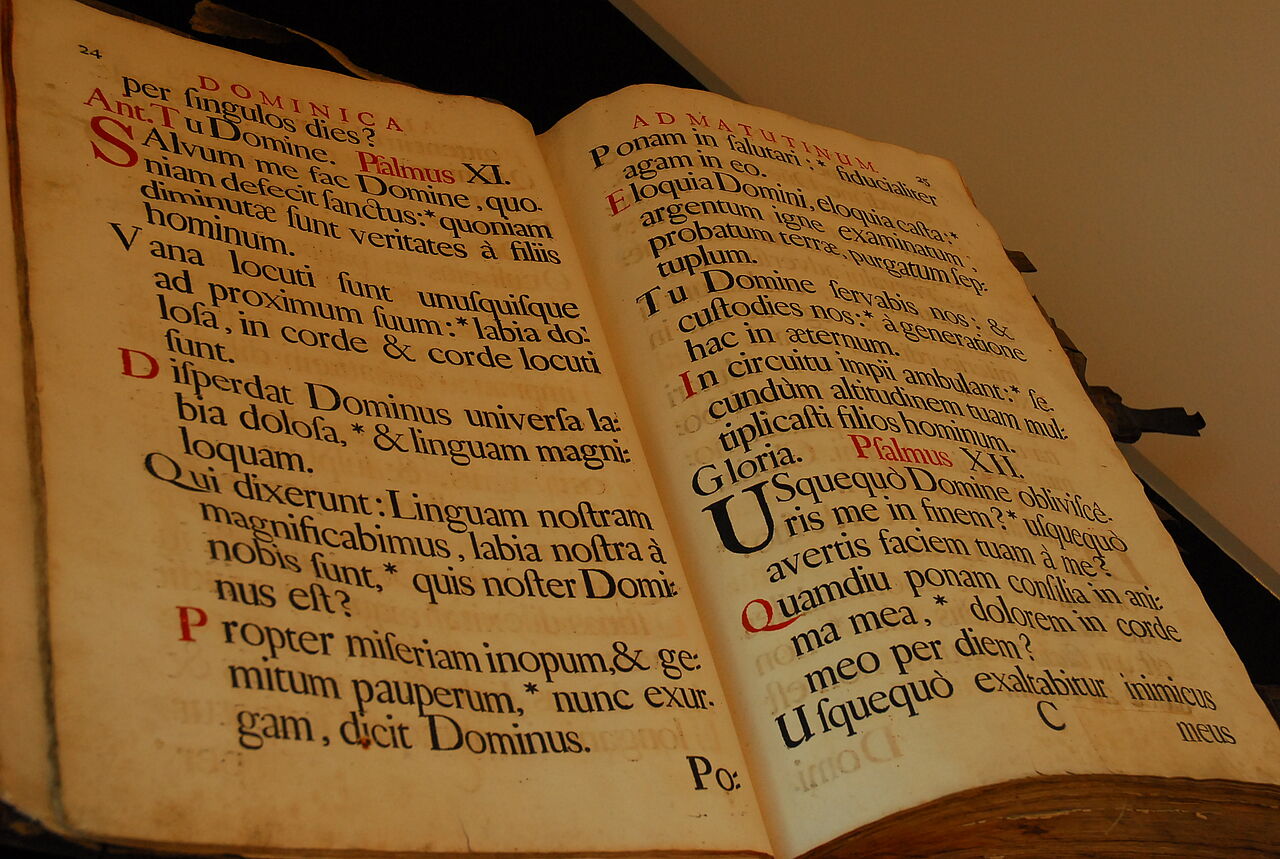 24
DOMINICA
per ſingulos dies?
Ant. Tu Domine. Pſalmus XI.
SAlvum me fac Domine, quo-
niam defecit ſanctus:* quoniam
diminutæ ſunt veritates à filiis
hominum.
Vana locuti ſunt unuſquiſque
ad proximum ſuum:* labia do:
loſa, in corde & corde locuti
ſunt.
Diſperdat Dominus univerſa la:
bia doloſa,* & linguam magni:
loquam.
Qui dixerunt: Linguam noſtram
magnificabimus, labia noſtra à
nobis ſunt,* quis noſter Domi:
nus eſt?
Propter miſeriam inopum, & ge:
mitum pauperum,* nunc exur-
gam, dicit Dominus.
Po:
AD MATUTINUM
25
Ponam in ſalutari:* fiducialiter
agam in eo.
Eloquia Domini, eloquia caſta:*
argentum igne examinatum,
probatum terræ, purgatum ſep:
tuplum.
Tu Domine ſervabis nos: &
cuſtodies nos:* à generatione
hac in æternum.
In circuitu impii ambulant:* ſe-
cundùm altitudinem tuam mul:
tiplicaſti filios hominum.
Gloria. Pſalmus XII.
USquequò Domine obliviſcé-
ris me in finem?* uſquequò
avertis faciem tuam à me?
Quamdiu ponam conſilia in ani:
ma mea,* dolorem in corde
meo per diem?
Uſquequò exaltabitur inimicus
C
meus